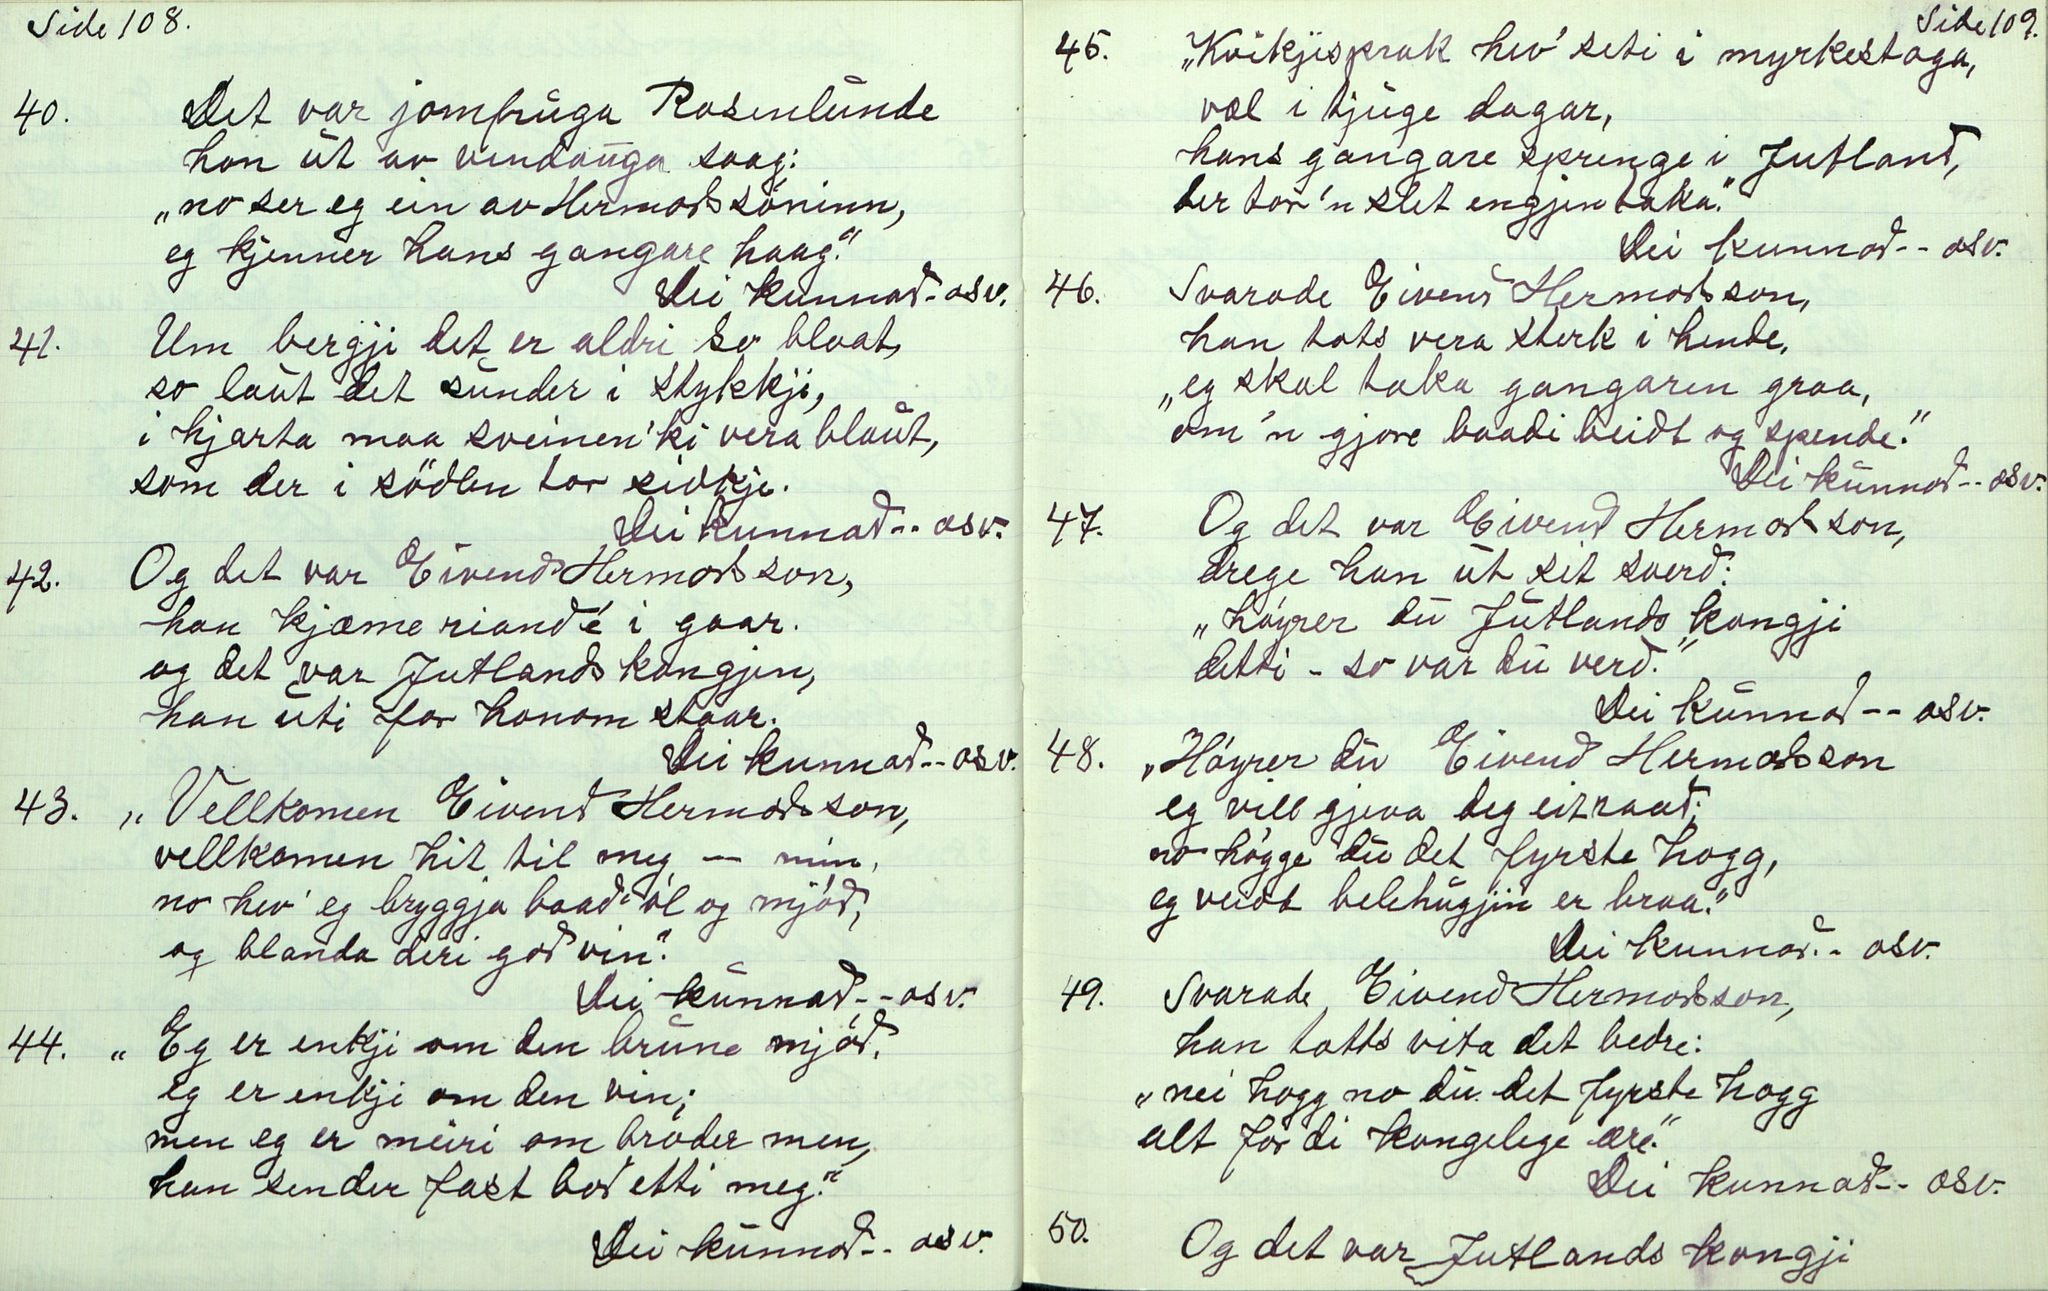 Side 108.
40. Det var jomfruga Rosenlunde
hon ut av vindauga saag:
„no ser eg ein av Hermodssöninn,
eg kjenner hans gangare haag."
Dei kunnad - osv.
41. Um bergji det er aldri so blaat,
so laut det sunder i stykkji,
i hjarta maa sveinen'ki vera blaut,
som der i södlen tor sidkje.
Dei kunnad -- osv.
42. Og det var Eivend Hermodsson,
han kjæme riand'é i gaar.
og det var Jutlandskongjen,
han uti for honom staar.
Dei kunnad -- osv.
43. „Vellkomen Eivend Hermodsson,
vellkomen hit til meg — min,
no hev' eg bryggja baad' öl og mjöd,
og blanda deri god vin."
Dei kunnad -- osv.
44. „Eg er enkji om den brune mjöd,
eg er enkji om den vin;
men eg er meiri om broder men,
han sender fast bod etti meg."
Dei kunnad -- osv.
Side 109.
45. „Kvikjesprak hev' seti i myrkestoga,
væl i tjuge dagar,
hans gangare sprenge i Jutland,
der tor'n slet engjen taka."
Dei kunnad -- osv.
46. Svarade Eivend Hermodsson,
han tots vera sterk i hende,
„eg skal taka gangaren graa,
om'n gjore baadi beidt og spende."
Dei kunnad -- osv.
47. Og det var Eivend Hermodsson,
drege han ut sit sverd:
„höyrer du Jutlands kongji
detti - so var du verd."
Dei kunnad -- osv.
48. „Höyrer du Eivend Hermodsson
eg vill gjeva deg eit raad;
no högge du det fyrste hogg,
eg veidt belehugjin er braa."
Dei kunnad -- osv.
49. Svarade Eivend Hermodsson,
han totts vita det bedre:
„nei hogg no du det fyrste hogg
alt for di kongelege ære."
Dei kunnad -- osv.
50. Og det var Jutlands kongji